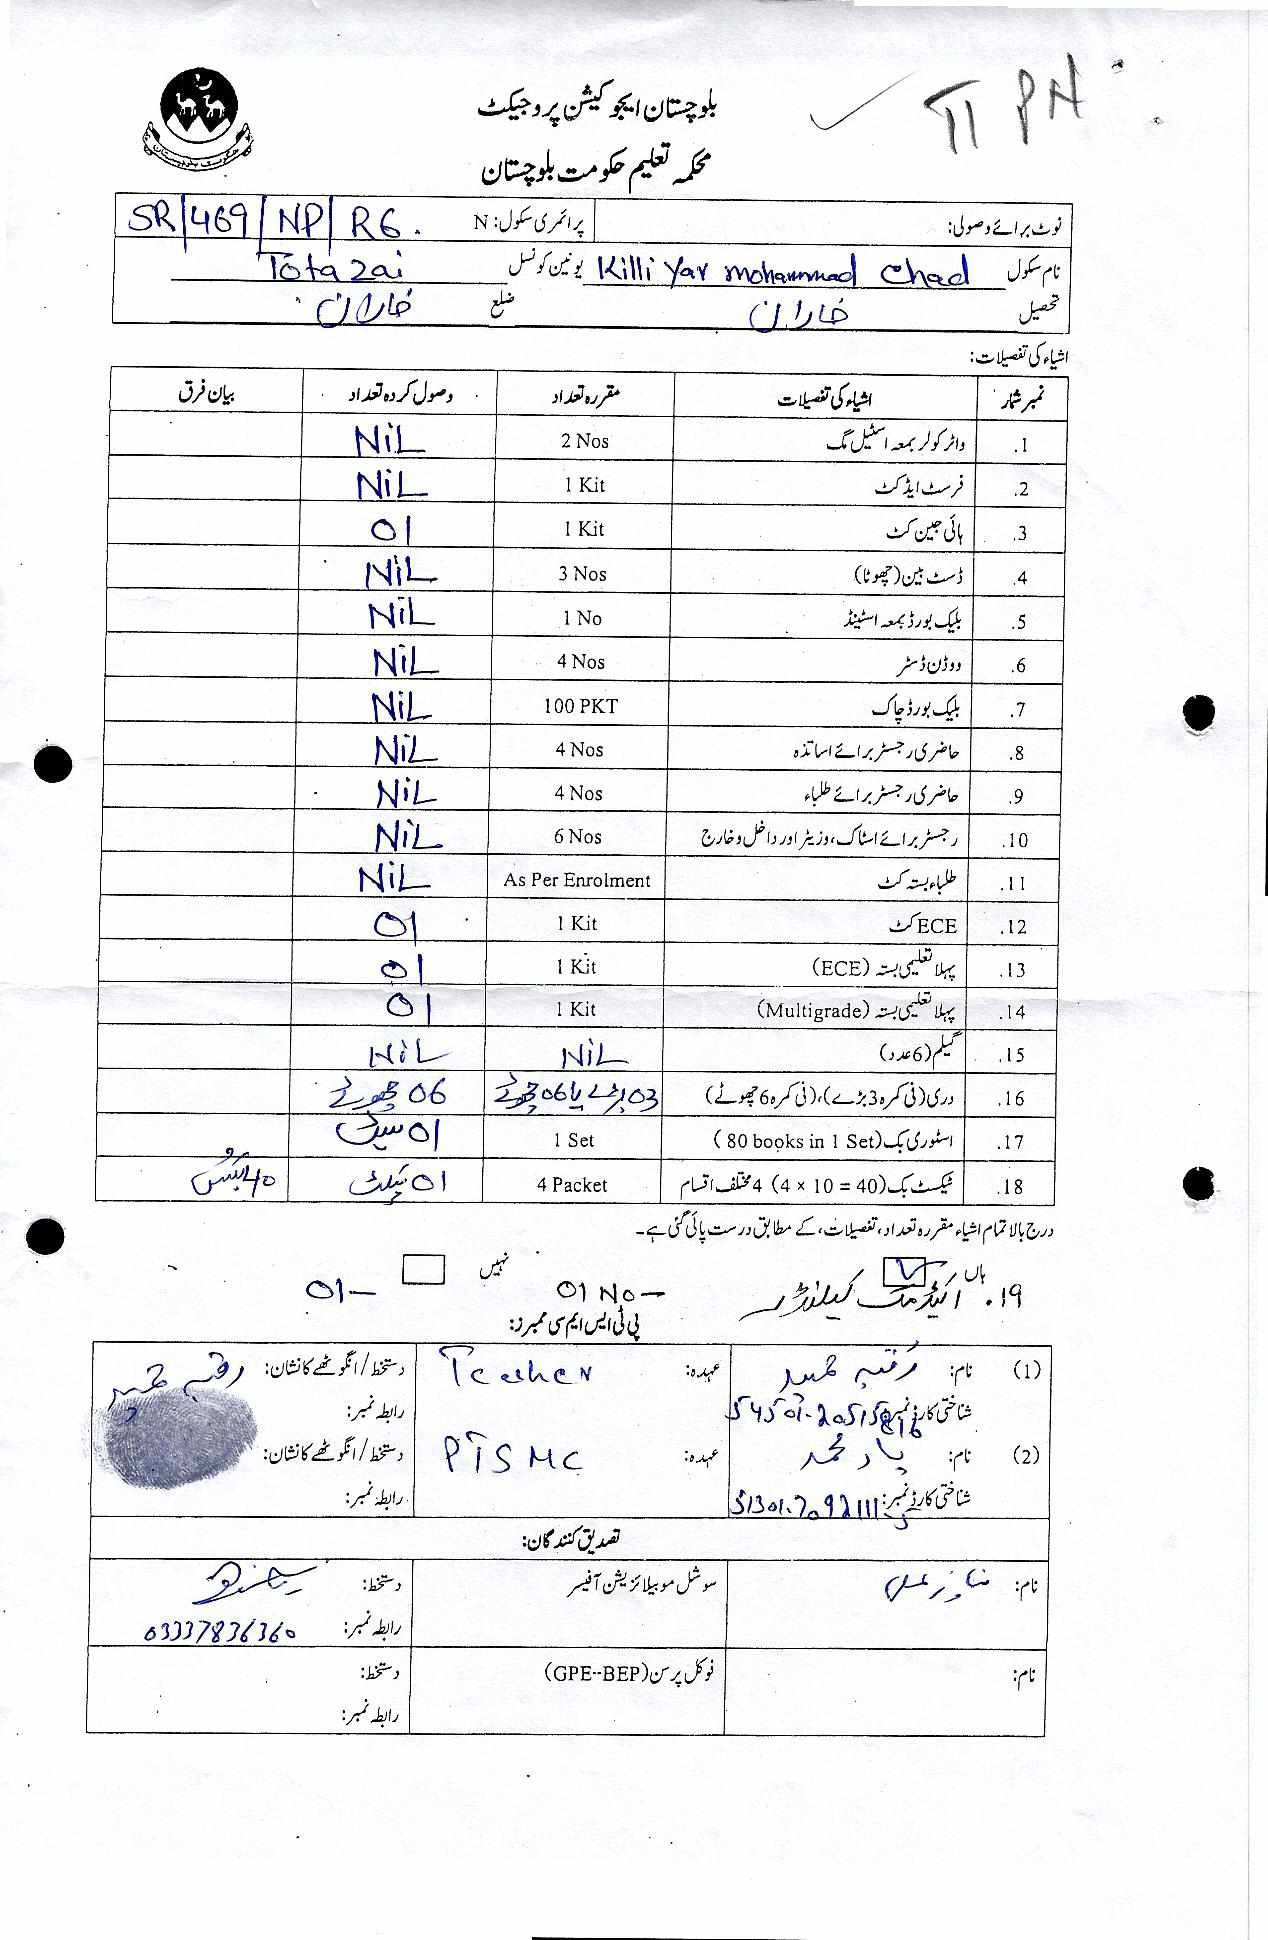 II PH
بلوچستان ایجوکیشن پروجیکٹ
محکمہ تعلیم حکومت بلوچستان
نوٹ برائے وصولی: پرائمری سکول: N SR/469/NP/R6.
نام سکول Killi Yar mohammad chad یونین کونسل Totazai
تحصیل خاران ضلع خاران
اشیاء کی تفصیلات:
نمبر شمار اشیاء کی تفصیلات مقررہ تعداد وصول کردہ تعداد بیان فرق
1. واٹر کولر بمعہ اسٹیل مگ 2 Nos NiL
2. فرسٹ ایڈ کٹ 1 Kit NiL
3. ہائی جین کٹ 1 Kit 01
4. ڈسٹ بین (چھوٹا) 3 Nos NiL
5. بلیک بورڈ بمعہ اسٹینڈ 1 No NiL
6. ووڈن ڈسٹر 4 Nos NiL
7. بلیک بورڈ چاک 100 PKT NiL
8. حاضری رجسٹر برائے اساتذہ 4 Nos NiL
9. حاضری رجسٹر برائے طلباء 4 Nos NiL
10. رجسٹر برائے اسٹاک، وزیٹر اور داخل و خارج 6 Nos NiL
11. طلباء بستہ کٹ As Per Enrolment NiL
12. ECE کٹ 1 Kit 01
13. پہلا تعلیمی بستہ (ECE) 1 Kit 01
14. پہلا تعلیمی بستہ (Multigrade) 1 Kit 01
15. گیلم (6 عدد) NiL NiL
16. دری (فی کمرہ 3 بڑے)، (فی کمرہ 6 چھوٹے) 03 بڑے یا 06 چھوٹے 06 چھوٹے
17. اسٹوری بک (80 books in 1 Set) 1 Set 01 سیٹ
18. ٹیکسٹ بک (4 × 10 = 40) 4 مختلف اقسام 4 Packet 01 پیکٹ 40 بکس
درج بالا تمام اشیاء مقررہ تعداد، تفصیلات، کے مطابق درست پائی گئی ہے۔
ہاں نہیں
19. اکیڈمک کیلنڈر 01 No — 01 —
پی ٹی ایس ایم سی ممبرز:
(1) نام: رقیہ حمید عہدہ: Teacher دستخط/انگوٹھے کا نشان: رقیہ حمید
شناختی کارڈ نمبر: رابطہ نمبر:
(2) نام: یار محمد عہدہ: PTSMC دستخط/انگوٹھے کا نشان:
شناختی کارڈ نمبر: رابطہ نمبر:
تصدیق کنندگان:
نام: سوشل موبیلائزیشن آفیسر دستخط:
رابطہ نمبر: 03337836360
نام: فوکل پرسن (GPE--BEP) دستخط:
رابطہ نمبر: